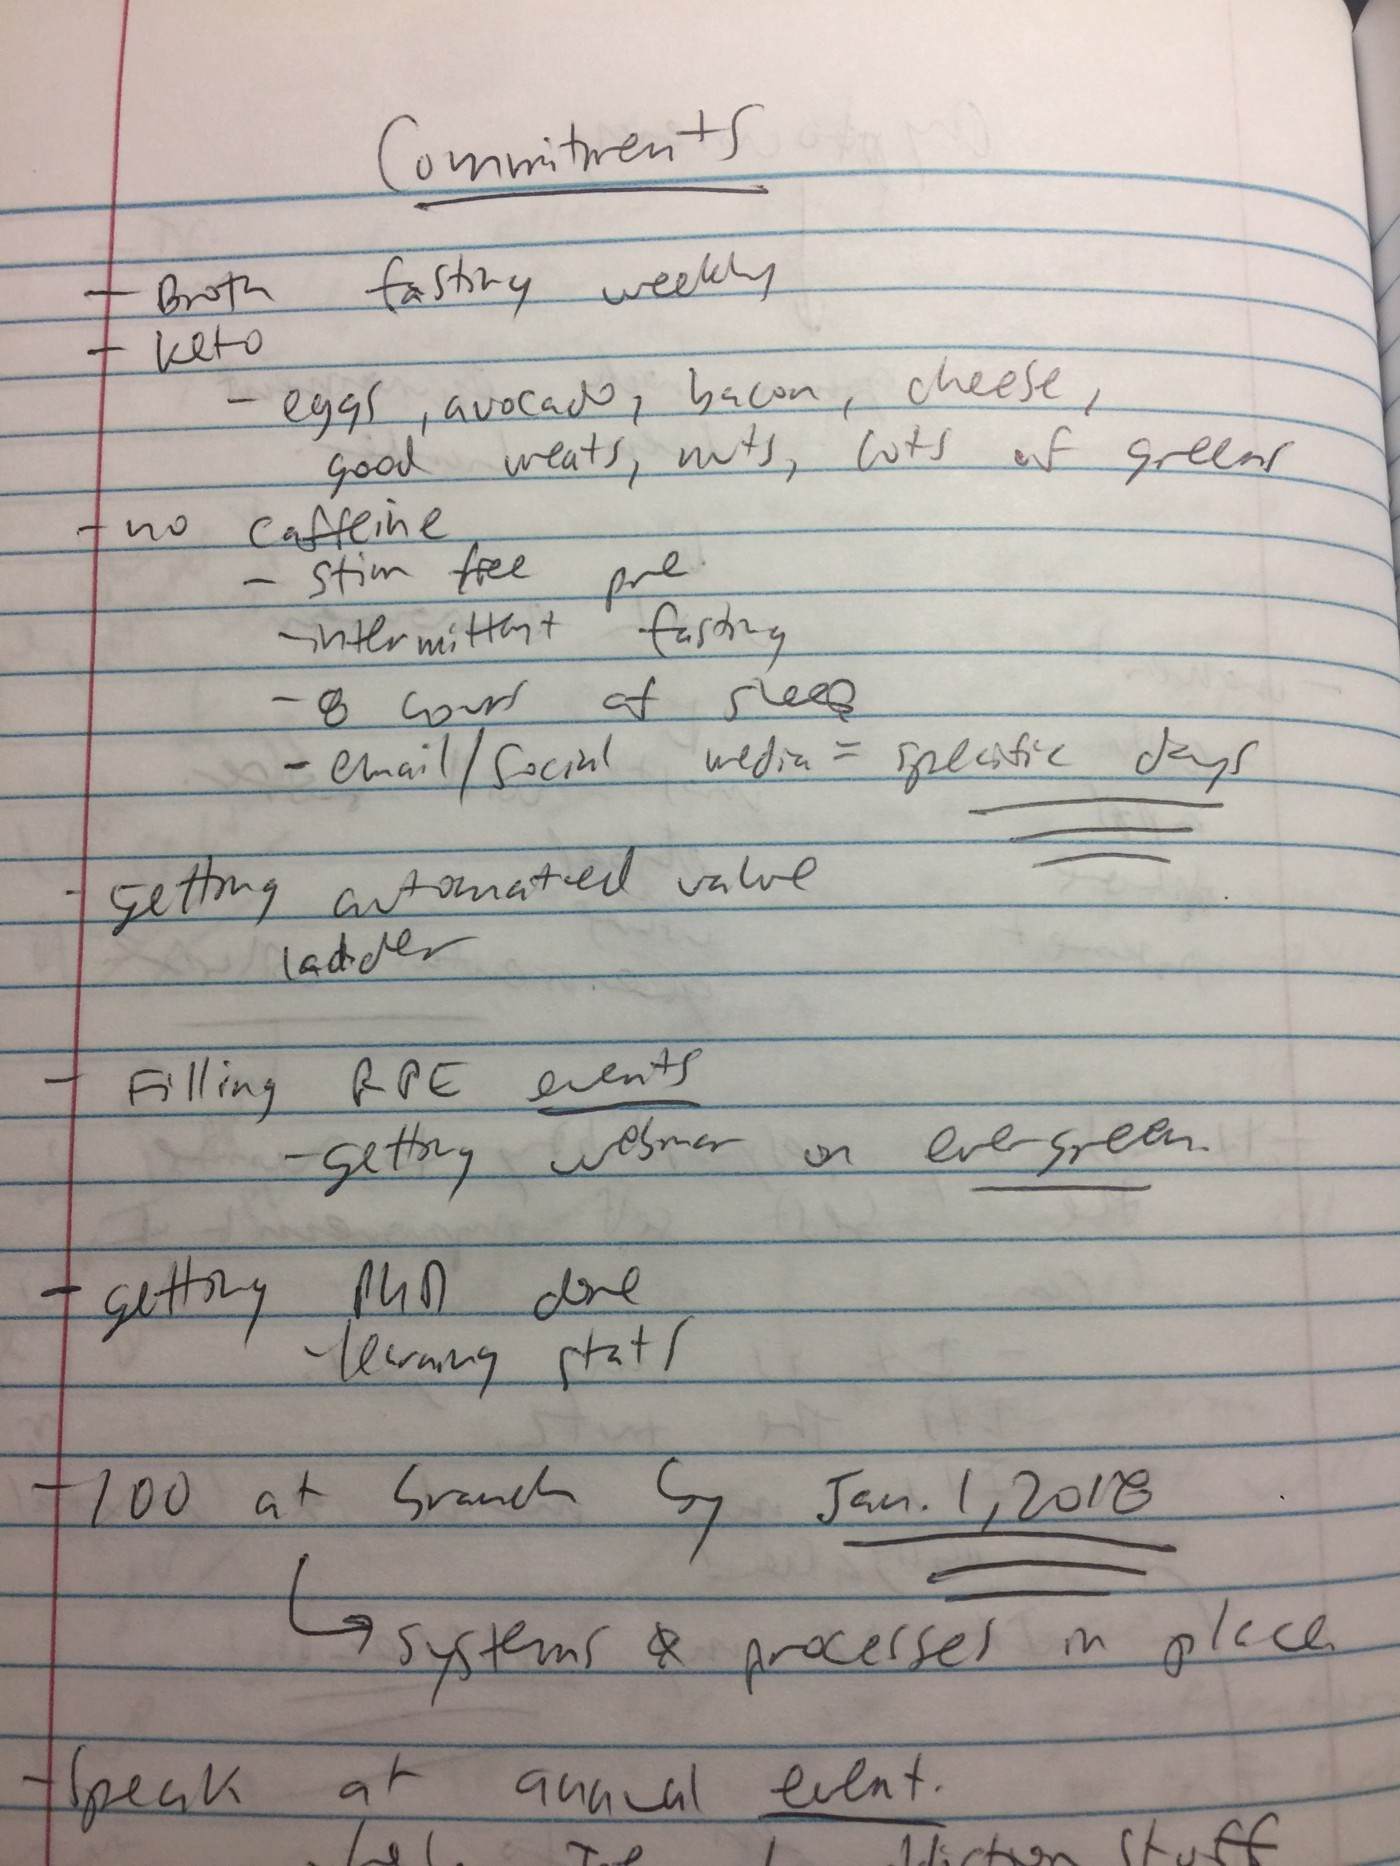 Commitments
- Broth fasting weekly
- Keto
- eggs, avocado, bacon, cheese,
good meats, nuts, lots of greens
- no caffeine
- stim free pre
- intermittent fasting
- 8 hours of sleep
- email/social media = specific days
- Getting automated value
ladder
- Filling RPE events
- Getting webinar on evergreen.
- Getting PHD done
- learning stats
- 100 at branch by Jan. 1, 2018
↳ systems & processes in place
- Speak at annual event.
stuff